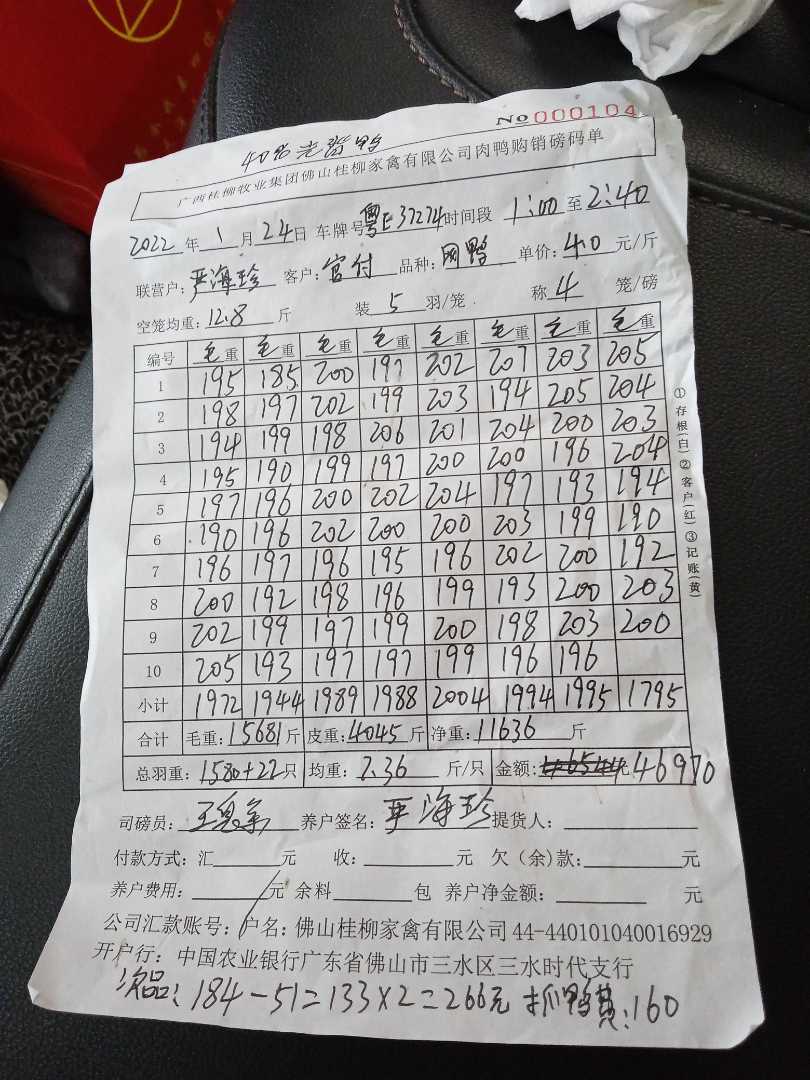 No 000104
40%光背鸭
广西桂柳牧业集团佛山桂柳家禽有限公司肉鸭购销磅码单
2022年1月24日 车牌号粤E37274时间段 1:00至2:40
联营户:严海珍 客户:官付 品种:网鸭 单价:4.0元/斤
空笼均重:12.8斤 装5羽/笼 称4笼/磅
编号 毛重 毛重 毛重 毛重 毛重 毛重 毛重 毛重
1 195 185 200 197 202 207 203 205
2 198 197 202 199 203 194 205 204
3 194 199 198 206 201 204 200 203
4 195 190 199 197 200 200 196 204
5 197 196 200 202 204 197 193 194
6 190 196 202 200 200 203 199 190
7 196 197 196 195 196 202 200 192
8 200 192 198 196 199 193 200 203
9 202 199 197 199 200 198 203 200
10 205 193 197 197 199 196 196
小计 1972 1944 1989 1988 2004 1994 1995 1795
合计 毛重:15681斤 皮重:4045斤 净重:11636斤
总羽重:1580+22只 均重:7.36斤/只 金额:46970
司磅员: 养户签名:严海珍 提货人:
付款方式:汇 元 收: 元 欠(余)款: 元
养户费用: 元 余料 包 养户净金额: 元
公司汇款账号:户名:佛山桂柳家禽有限公司 44-440101040016929
开户行:中国农业银行广东省佛山市三水区三水时代支行
次品:184-51=133×2=266元 抓鸭费:160
①存根(白)②客户(红)③记账(黄)